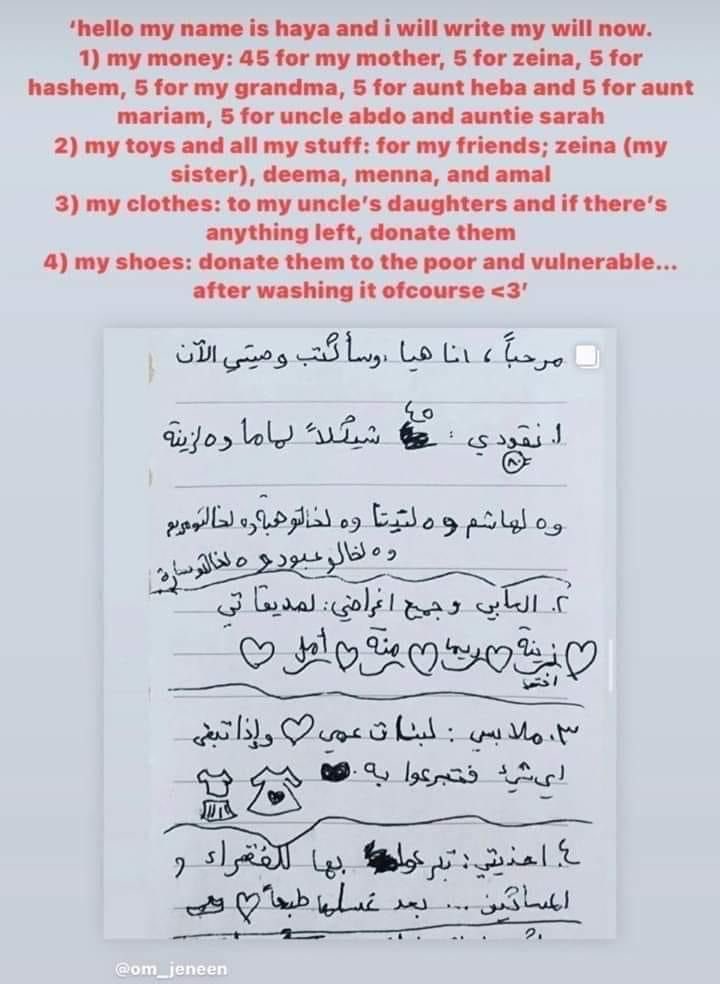 ‘hello my name is haya and i will write my will now.
1) my money: 45 for my mother, 5 for zeina, 5 for
hashem, 5 for my grandma, 5 for aunt heba and 5 for aunt
mariam, 5 for uncle abdo and auntie sarah
2) my toys and all my stuff: for my friends; zeina (my
sister), deema, menna, and amal
3) my clothes: to my uncle’s daughters and if there’s
anything left, donate them
4) my shoes: donate them to the poor and vulnerable...
after washing it ofcourse <3’
مرحباً، انا هيا، وسأكتب وصيتي الآن
١. نقودي: ٤٥ شيكلاً لماما و٥ لزينة
٨٠
و٥ لهاشم و٥ لتيتا و٥ لخالتو هبة و٥ لخالتو مريم
و٥ لخالو عبود و٥ لخالتو سارة
٢. العابي وجميع اغراضي: لصديقاتي
زينة ريما منة أمل
اختي
٣. ملابسي: لبنات عمي وإذا تبقى
اي شيئ فتبرعوا به.
٤. احذيتي: تبرعوا بها للفقراء و
المساكين ... بعد غسلها طبعاً
@om_jeneen